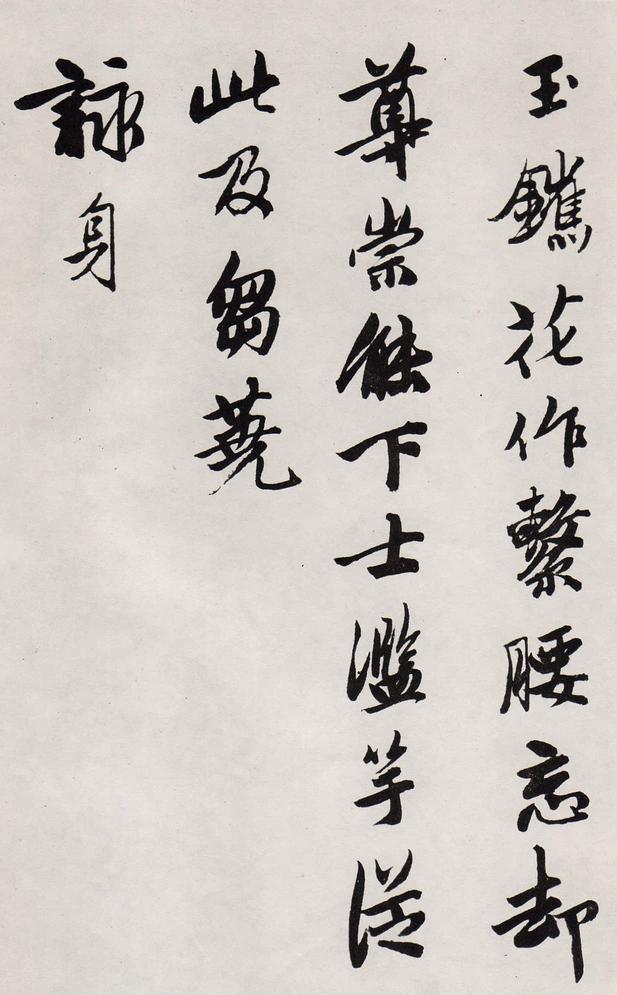 玉鑴花作繫腰忘却
尊崇能下士濫竽從
此及芻蕘
詠身